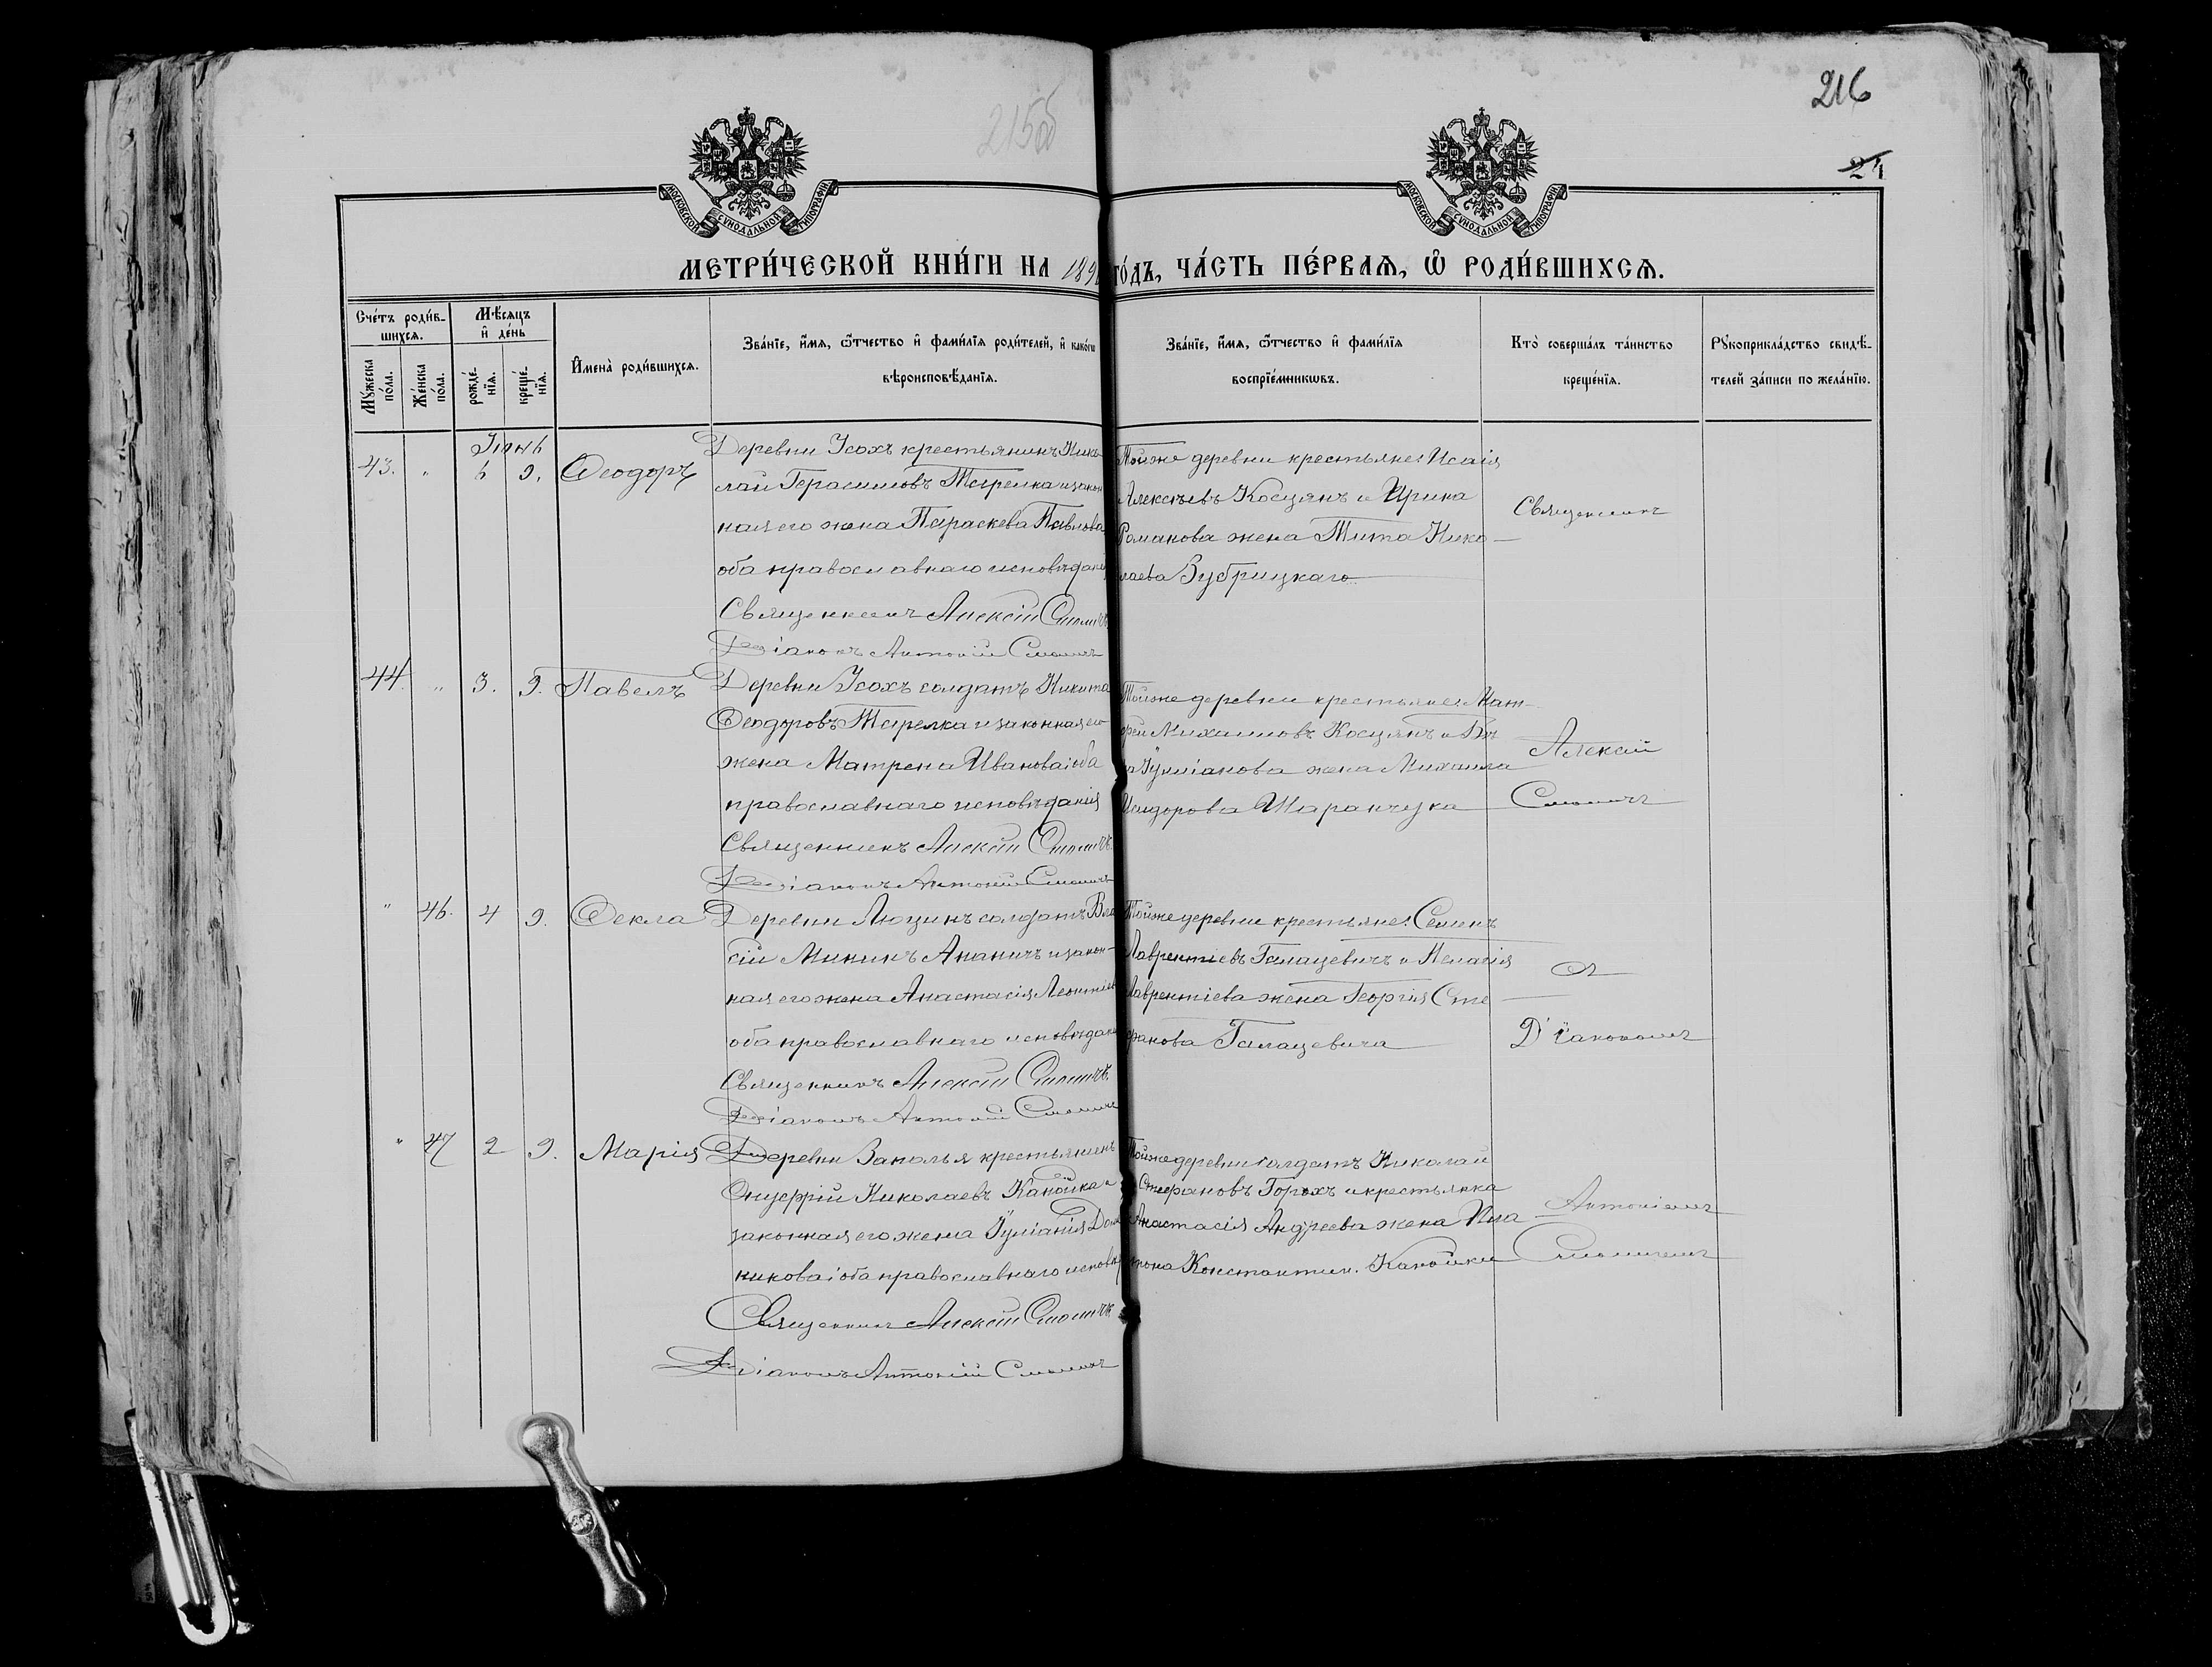 215об
216
24
МОСКОВСКОЙ СѴНОДАЛЬНОЙ ТИПОГРАФІИ
МОСКОВСКОЙ СѴНОДАЛЬНОЙ ТИПОГРАФІИ
МЕТРИ́ЧЕСКОЙ КНИ́ГИ НА 189 ГО́ДЪ, ЧА́СТЬ ПЕ́РВАѦ, Ѽ РОДИ́ВШИХСѦ.
Сче́тъ роди́в-
шихсѧ.
Мꙋ́жеска по́ла.
Же́нска по́ла.
Мѣ́сѧцъ
и҆ де́нь
рожде́-
нїѧ.
креще́-
нїѧ.
И҆мена̀ роди́вшихсѧ.
Зва́нїе, и҆́мѧ, ѻ҆́тчество и҆ фами́лїѧ роди́телей, и҆ како́гѡ
вѣроисповѣ́данїѧ.
Зва́нїе, и҆́мѧ, ѻ҆́тчество и҆ фами́лїѧ
воспрїе́мникѡвъ.
Кто̀ соверша́лъ та́инство
креще́нїѧ.
Рꙋкоприкла́дство свидѣ́-
телей за́писи по жела́нїю.
Іюнь
43. " 6 9. Ѳеодоръ
Деревни Усохъ крестьянинъ Нико-
лай Герасимовъ и закон
ная его жена Параскева Павлова
оба православнаго исповѣдан
Священникъ Алексій Смоличъ
Діаконъ Антоній Смоличъ
Тойже деревни крестьяне: Исаія
Алексѣевъ Косцянъ и Ирина
Романова жена Тита Нико-
лаева Зубрицкаго
Священникъ
44. " 3. 9. Павелъ
Деревни Усохъ солдатъ Никита
Ѳеодоровъ и законная его
жена Матрена Иванова; оба
православнаго исповѣданія
Священникъ Алексій Смоличъ
Діаконъ Антоній Смоличъ
Тойже деревни крестьяне: Мат-
фей Михаиловъ Косцянъ и Вѣ
ра Іуліанова жена Михаила
Исидорова Шаранчука
Алексій
Смоличъ
" 46. 4 9. Ѳекла
Деревни Люцинъ солдатъ Вла
сій Мининъ Ананичъ и закон-
ная его жена Анастасія Леонтіев
оба православнаго исповѣдан
Священникъ Алексій Смоличъ
Діаконъ Антоній Смоличъ
Тойже деревни крестьяне: Семенъ
Лаврентіевъ Галацевичъ и Пелагія
Лаврентіева жена Георгія Сте
фанова Галацевича
съ
Діакономъ
" 47 2 9. Марія
Деревни Заполья крестьянинъ
Онуфрій Николаевъ Канойка и
законная его жена Іуліанія Дом
никова; оба православнаго исповѣд
Священникъ Алексій Смоличъ
Діаконъ Антоній Смоличъ
Тойже деревни солдатъ Николай
Стефановъ Горохъ и крестьянка
Анастасія Андреева жена Пла
тона Константин. Канойки
Антоніемъ
Смоличемъ